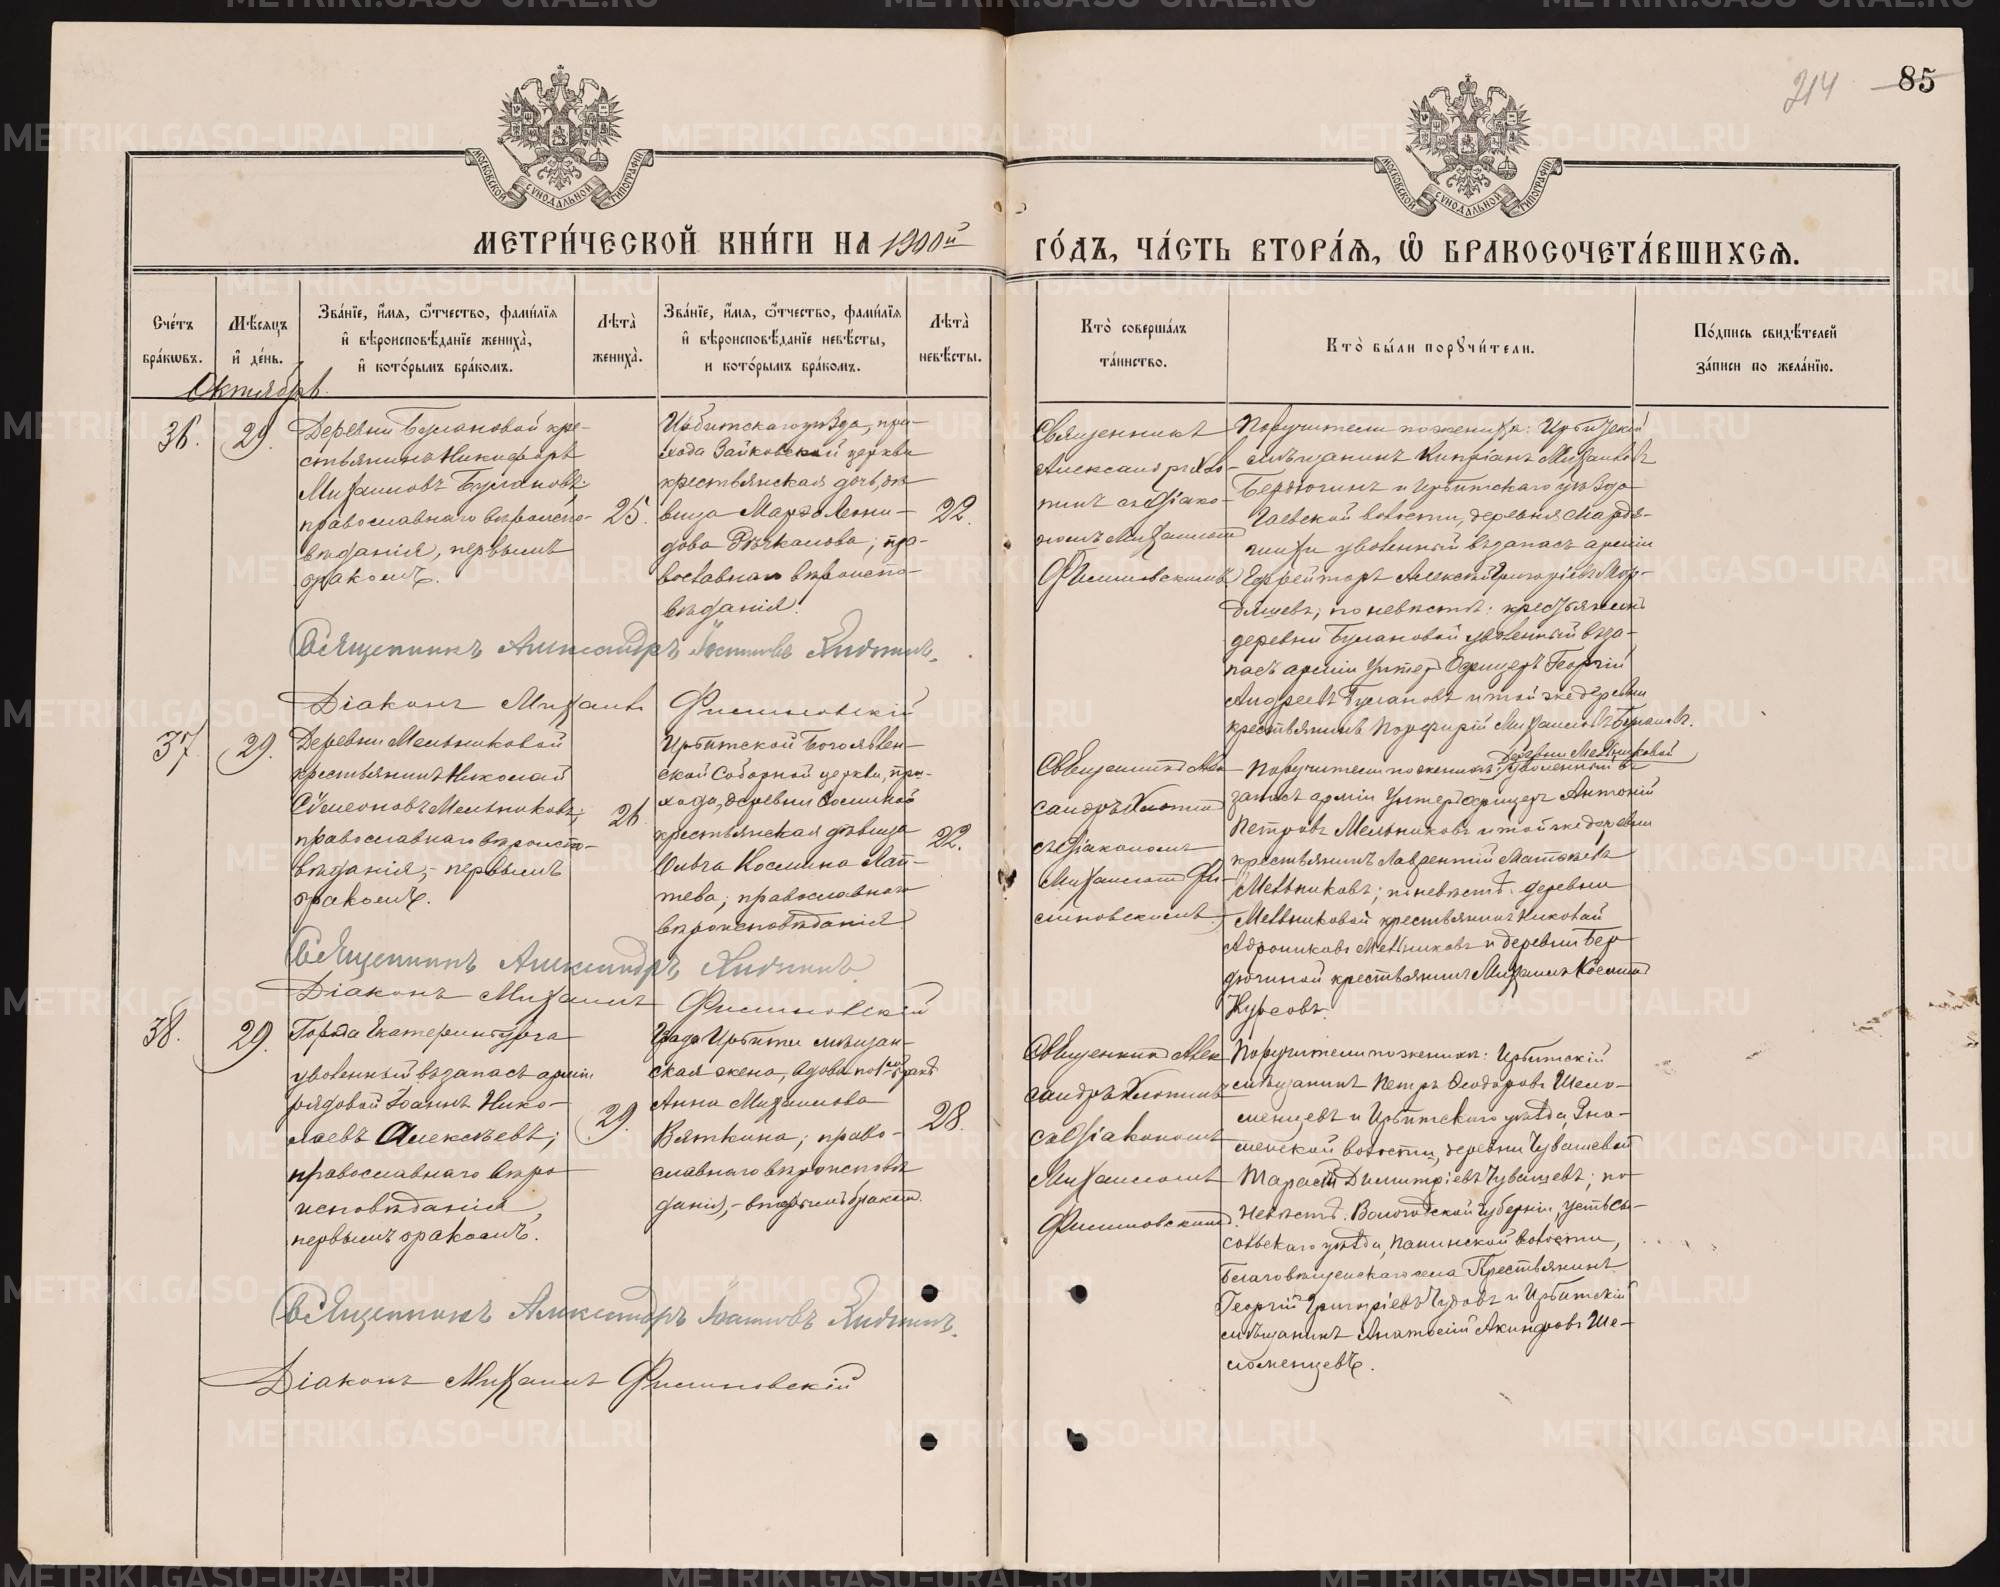 214 85
МОСКОВСКОЙ СѴНОДАЛЬНОЙ ТИПОГРАФІИ
МОСКОВСКОЙ СѴНОДАЛЬНОЙ ТИПОГРАФІИ
МЕТРИ́ЧЕСКОЙ КНИ́ГИ НА 1900й
ГО́ДЪ, ЧА́СТЬ ВТОРА́Я, Ѿ БРАКОСОЧЕТА́ВШИХСЯ.
Сче́тъ
бра́кѡвъ.
Мѣ́сяцъ
и҆ де́нь.
Зва́нїе, и҆́мя, ѻ҆́тчество, фами́лїя
и҆ вѣроисповѣ́данїе жениха̀,
и҆ кото́рымъ бра́комъ.
Лѣта̀
жениха̀.
Зва́нїе, и҆́мя, ѻ҆́тчество, фами́лїя
и҆ вѣроисповѣ́данїе невѣ́сты,
и кото́рымъ бра́комъ.
Лѣта̀
невѣ́сты.
Кто̀ соверша́лъ
та́инство.
Кто̀ бы́ли порꙋчи́тели.
По́дпись свидѣ́телей
за́писи по жела́нїю.
Октябрь.
36.
29.
Деревни Булановой кре-
стьянинъ Никифоръ
Михаиловъ Булановъ;
православнаго вѣроиспо-
вѣданія, первымъ
бракомъ.
25.
Ирбитскаго уѣзда, при-
хода Зайковской церкви
крестьянская дочь, дѣ-
вица Марѳа Леони-
дова Рѣчкалова; пра-
вославнаго вѣроиспо-
вѣданія.
22.
Священникъ
Александръ Хло-
пинъ съ діако-
номъ Михаиломъ
Филиповскимъ
Поручители по женихѣ: Ирбитскій
мѣщанинъ Кипріанъ Михаиловъ
Бердюгинъ и Ирбитскаго уѣзда
Гаевской волости, деревни Мордя-
шихи уволенный въ запасъ арміи
Ефрейторъ Алексѣй Григоріевъ Мор-
дяшевъ; по невѣстѣ: крестьянинъ
деревни Булановой уволенный въ за-
пасъ арміи Унтеръ Офицеръ Георгій
Андреевъ Булановъ и той же деревни
крестьянинъ Порфирій Михаиловъ Булановъ.
Священникъ Александръ Іоанновъ Хлопинъ.
Діаконъ Михаилъ Филиповскій
37.
29.
Деревни Мельниковой
крестьянинъ Николай
Сѵмеоновъ Мельниковъ;
православнаго вѣроиспо-
вѣданія, - первымъ
бракомъ.
26.
Ирбитской Богоявлен-
ской Соборной церкви, при-
хода, деревни
крестьянская дѣвица
Ольга Космина Лап-
тева; православнаго
вѣроисповѣданія
22.
Священникъ Алек-
сандръ Хлопинъ
съ діакономъ
Михаиломъ Фи-
липовскимъ
деревни Мельниковой
Поручители по женихѣ: уволенный въ
запасъ арміи Унтеръ Офицеръ Антоній
Петровъ Мельниковъ и той же деревни
крестьянинъ Лаврентій
Мельниковъ; по невѣстѣ: деревни
Мельниковой крестьянинъ Николай
Адрониковъ Мельниковъ и деревни Бер-
дюгиной крестьянинъ Михаилъ Косминъ
Священникъ Александръ Хлопинъ
Діаконъ Михаилъ Филиповскій
38.
29.
Города Екатеринбурга
уволенный въ запасъ арміи
рядовой Іоаннъ Нико-
лаевъ Алексѣевъ;
православнаго вѣро-
исповѣданія,
первымъ бракомъ.
29.
Града Ирбити мѣщан-
ская жена, вдова по 1мъ бракѣ
Анна Михаилова
Вяткина; право-
славнаго вѣроисповѣ-
данія, - вторымъ бракомъ.
28.
Священникъ Алек-
сандръ Хлопинъ
съ діакономъ
Михаиломъ
Филиповскимъ.
Поручители по женихѣ: Ирбитскій
мѣщанинъ Петръ Ѳеодоровъ Шело-
менцевъ и Ирбитскаго уѣзда, Зна-
менской волости, деревни Чувашевой
Тарасій Димитріевъ Чувашевъ; по
невѣстѣ: Вологодской губерніи, Усть Сы-
сольскаго уѣзда, волости,
Благовѣщенскаго села Крестьянинъ
Георгій Григоріевъ Чудовъ и Ирбитскій
мѣщанинъ Анатолій Акинфовъ Ше-
ломенцевъ.
Священникъ Александръ Іоанновъ Хлопинъ.
Діаконъ Михаилъ Филиповскій